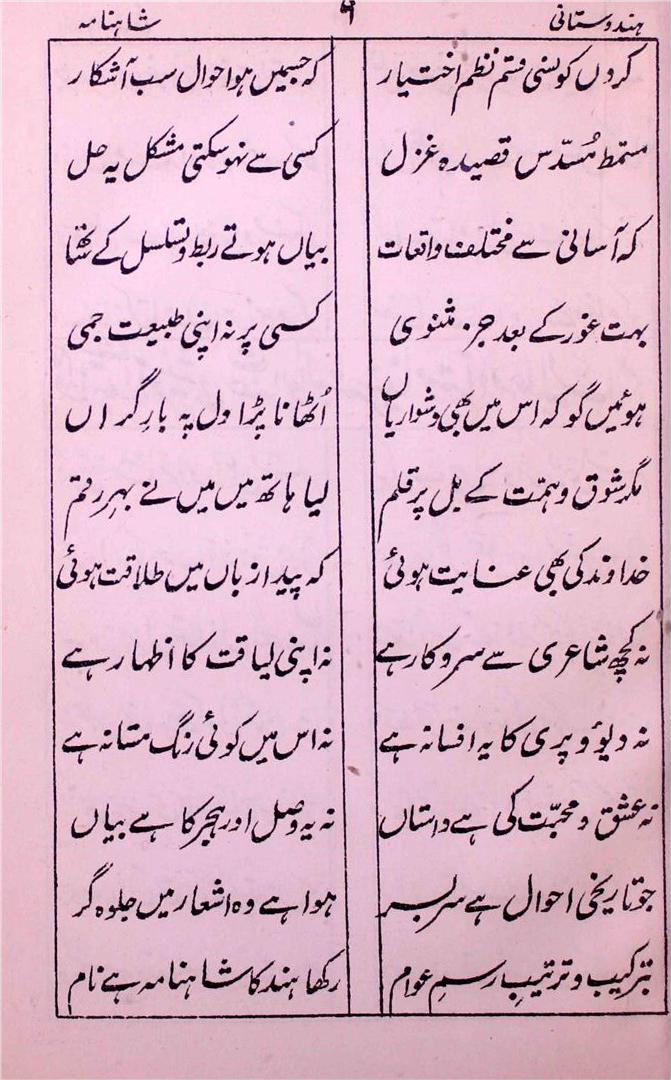 ہندوستانی ۹ شاہنامہ
کروں کونسی قسم نظم اختیار کہ جسمیں ہوا حوال سب آشکار
مسمّط مُسدّس قصیدہ غزل کسی سے نہو سکتی مشکل یہ حل
کہ آسانی سے مختلف واقعات بیاں ہوتے ربط و تسلسل کے ساتھ
بہت غور کے بعد جز مثنوی کسی پر نہ اپنی طبیعت جمی
ہوئیں گو کہ اس میں بھی دشواریاں اُٹھانا پڑا دل پہ بارِ گراں
مگر شوق و ہمّت کے بل پر قلم لیا ہاتھ میں میں نے بہرِ رقم
خداوند کی بھی عنایت ہوئی کہ پیدا زباں میں طلاقت ہوئی
نہ کچھ شاعری سے سروکار ہے نہ اپنی لیاقت کا اظہار ہے
نہ دیوٗ و پری کا یہ افسانہ ہے نہ اس میں کوئی رنگ مستانہ ہے
نہ عشق و محبّت کی ہے داستاں نہ یہ وصل اور ہجر کا ہے بیاں
جو تاریخی احوال ہے سربسر ہوا ہے وہ اشعار میں جلوہ گر
بترکیب و ترتیبِ رسمِ عوام رکھا ہند کا شاہنامہ ہے نام